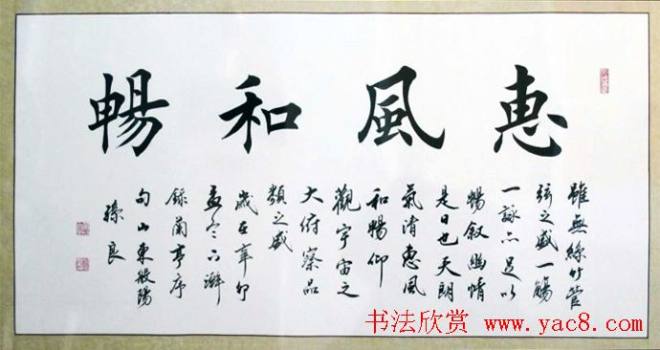 惠風和暢
雖無絲竹管
弦之盛一觴
一詠亦足以
暢叙幽情
是日也天朗
氣清惠風
和暢仰
觀宇宙之
大府察品
類之盛
歲在辛卯
孟冬下澣
錄蘭亭序
句山東
孫良
书法欣赏 www.yac8.com